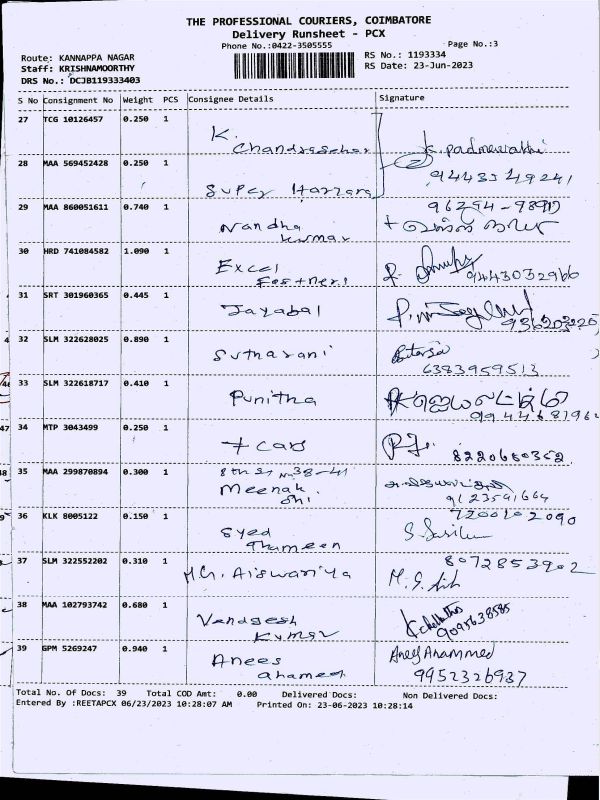 THE PROFESSIONAL COURIERS, COIMBATORE
Delivery Runsheet - PCX
Phone No.:0422-3505555
Page No.:3
Route: KANNAPPA NAGAR
RS No.: 1193334
Staff: KRISHNAMOORTHY
RS Date: 23-Jun-2023
DRS No.: DCJB119333403
S No Consignment No Weight PCS Consignee Details Signature
27 TCG 10126457 0.250 1
K. Chandrasekar
K. Padmavathi
28 MAA 569452428 0.250 1
Super Harrara
9443349241
29 MAA 860051611 0.740 1
Nandha Kumar
30 HRD 741084582 1.090 1
Excel Fastners
9443032966
31 SRT 301960365 0.445 1
Jayabal
32 SLM 322628025 0.890 1
Sutharani
6383959513
33 SLM 322618717 0.410 1
Punitha
34 MTP 3043499 0.250 1
7 cars
8220680352
35 MAA 299870894 0.300 1
8th St No 38-41
Meenakshi
9123591664
36 KLK 8005122 0.150 1
Syed Thameen
7200202090
37 SLM 322552202 0.310 1
M.G. Aiswariya
8072853902
38 MAA 102793742 0.680 1
Vendgesh Kumar
9095638585
39 GPM 5269247 0.940 1
Anees ahamed
Anees Ahammed
9952326937
Total No. Of Docs: 39 Total COD Amt: 0.00 Delivered Docs: Non Delivered Docs:
Entered By :REETAPCX 06/23/2023 10:28:07 AM Printed On: 23-06-2023 10:28:14